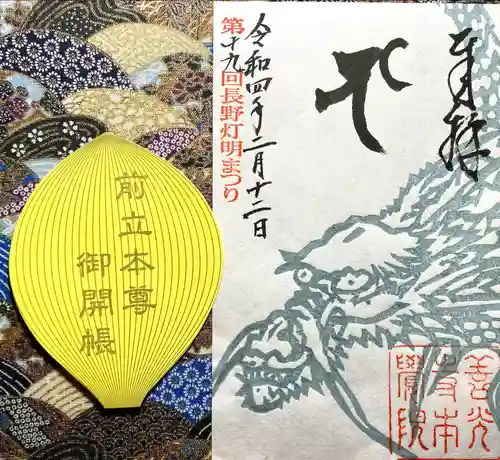 奉拝
令和四年二月十二日
第十九回長野灯明まつり
善光
寺本
覺院
前立本尊
御開帳